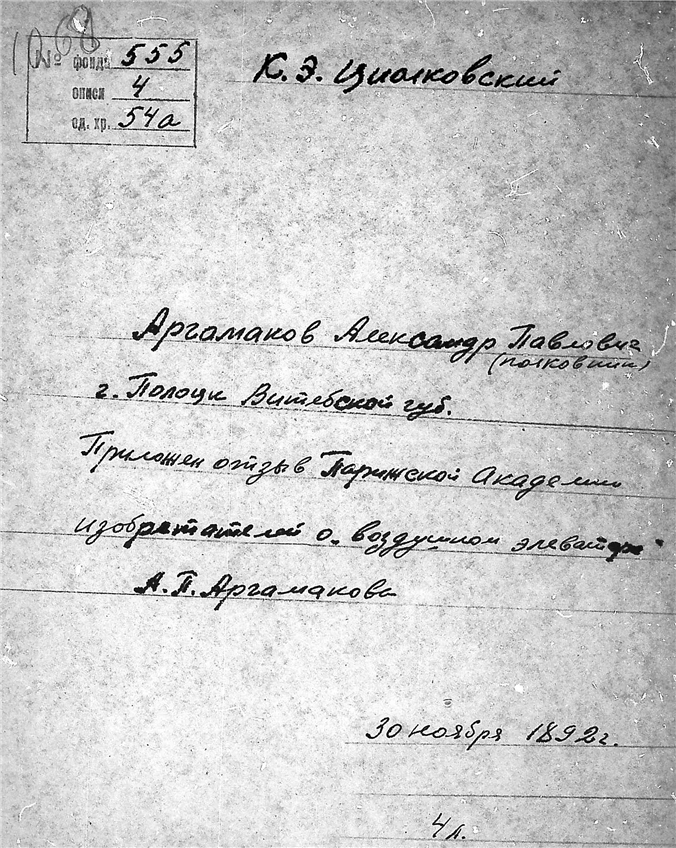 68
№ фонда 555
описи 4
ед. хр. 54а
К. Э. Циолковский
Аргамаков Александр Павлович
(полковник)
г. Полоцк Витебской губ.
Приложен отзыв Парижской Академии
изобретателей о „воздушном элеваторе"
А. П. Аргамакова
30 ноября 1892 г.
4 л.